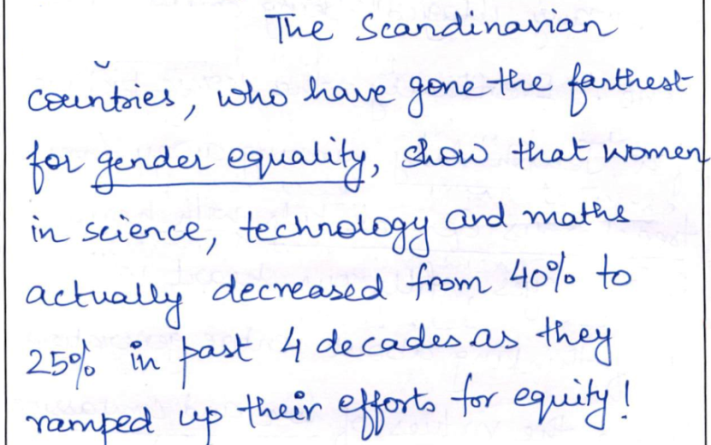 The Scandinavian
countries, who have gone the farthest
for gender equality, show that women
in science, technology and maths
actually decreased from 40% to
25% in past 4 decades as they
ramped up their efforts for equity!